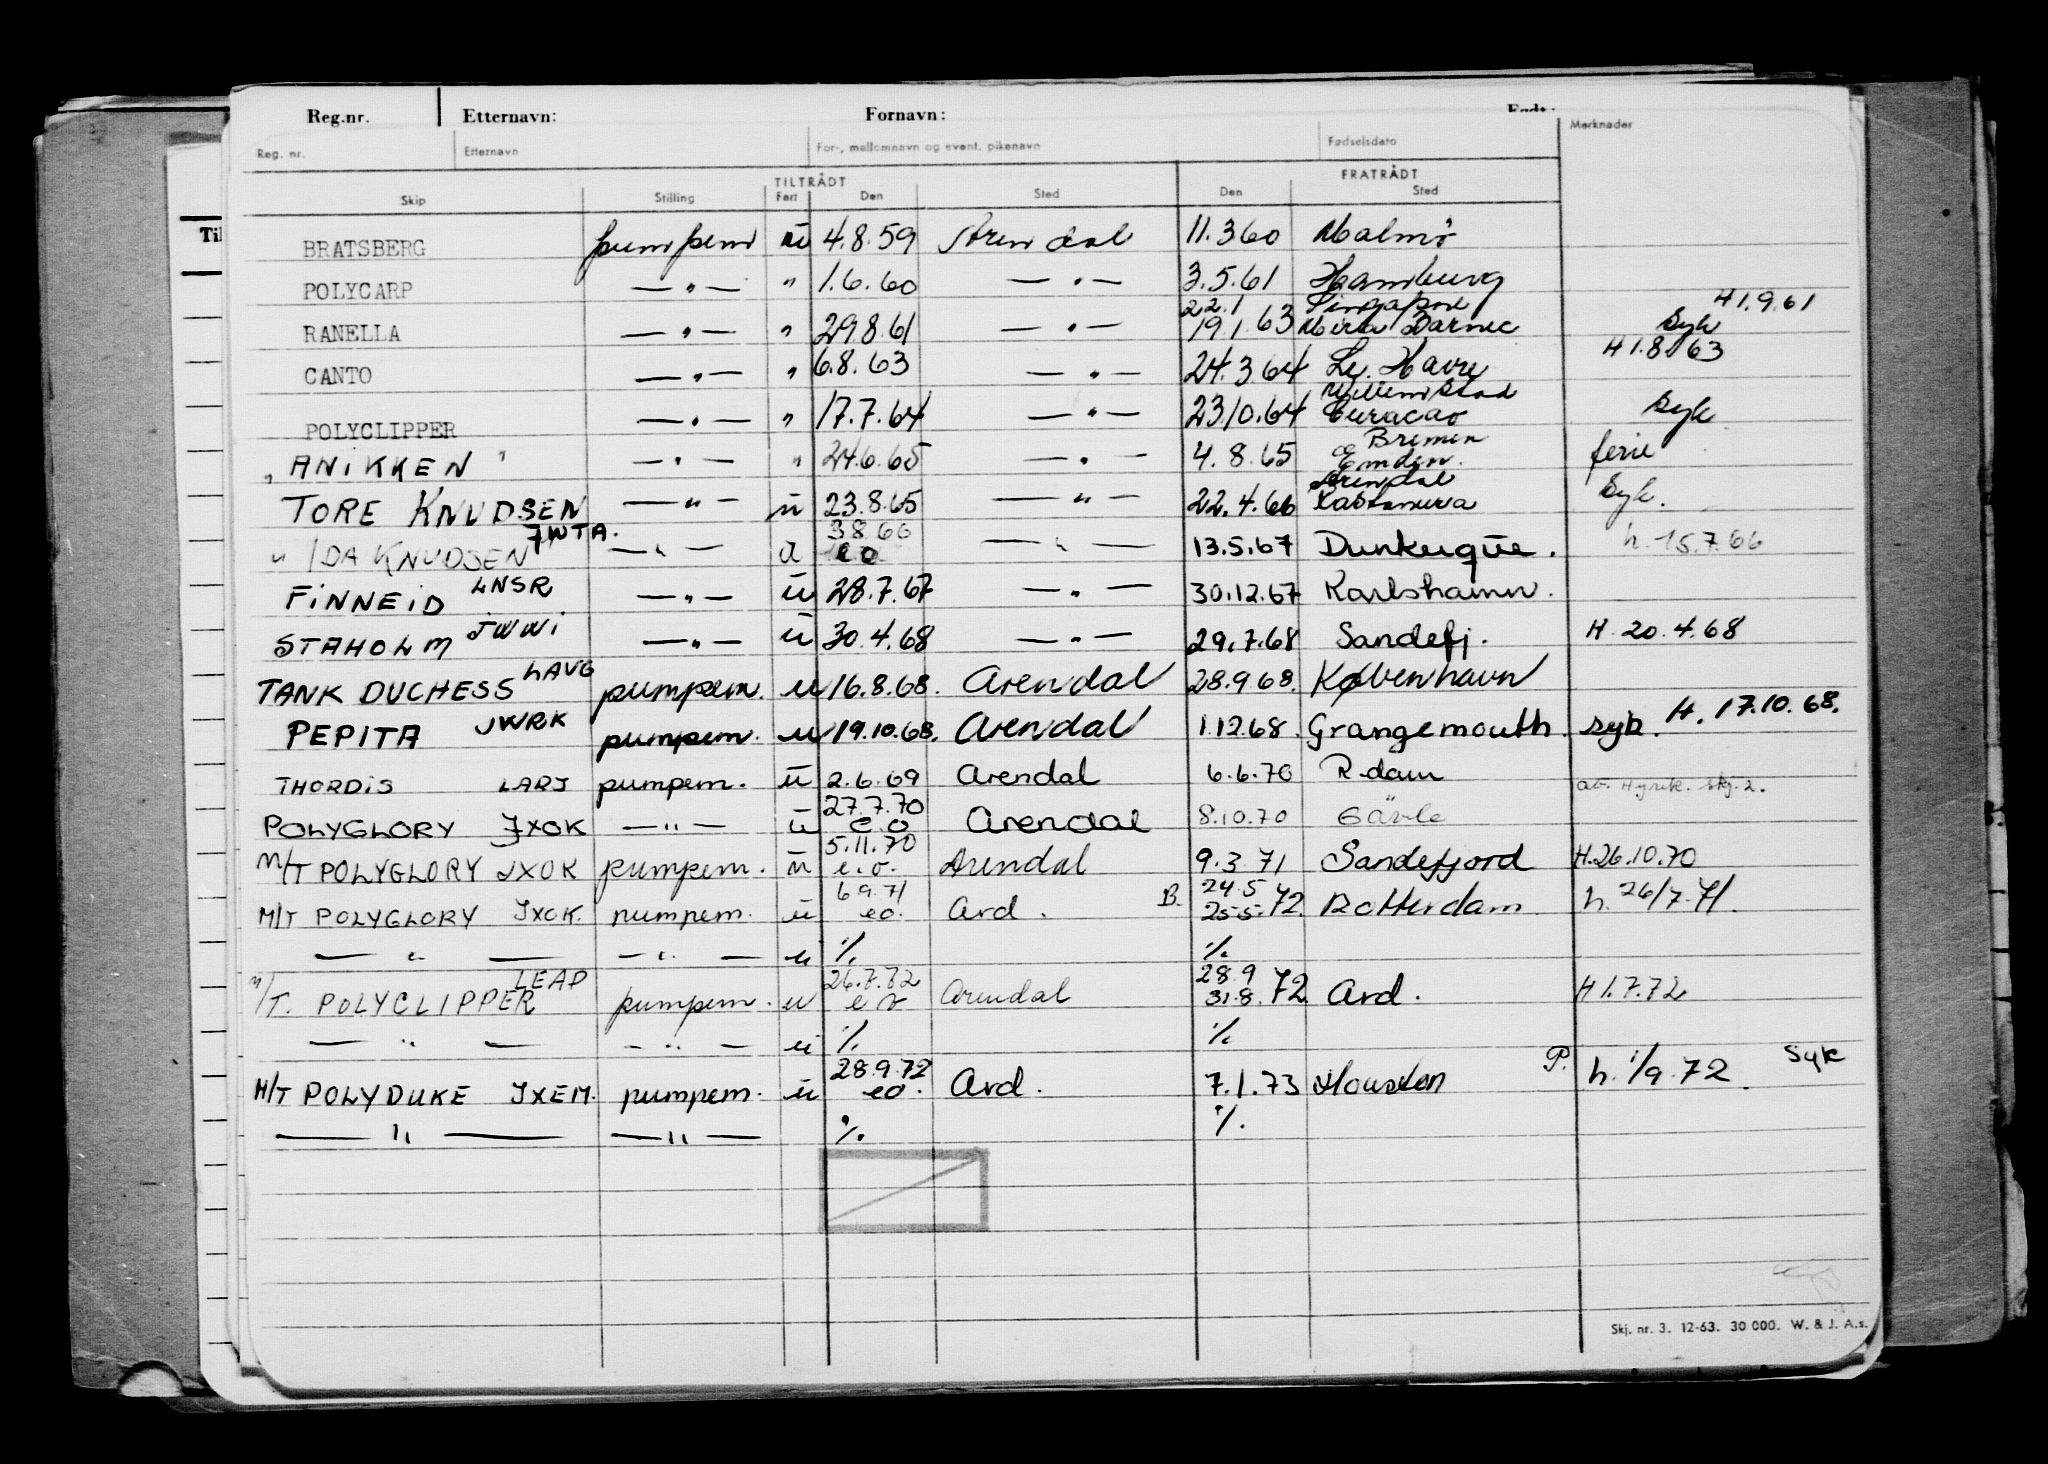 Reg.nr. Etternavn: Fornavn:
Reg. nr. Etternavn For-, mellomnavn og event. pikenavn Fødselsdato Merknader
TILTRÅDT FRATRÅDT
Skip Stilling Fart Den Sted Den Sted
Til
BRATSBERG pumpem u 4.8.59 Arendal 11.3 60 Malmö
POLYCARP — " — " 1.6.60 — " — 3.5.61 Hamburg
22.1 Singapore H 1.9.61
RANELLA — " — " 29.8.61 — " — 19.1.63 Syk
CANTO — " — " 6.8.63 — " — 24.3.64 Le. Havre H 1.8.63
Willemstad
POLYCLIPPER — " — " 17.7.64 — " — 23.10.64 Curacao Syk
Bremen
" ANIKKEN " — " — " 24.6.65 — " — 4.8.65 og Emden. ferie
Arendal
TORE KNUDSEN — " — u 23.8.65 — " — 22.4.66 Syk.
JWTA. 3.8.66
" IDA KNUDSEN — " — u eo — " — 13.5.67 Dunkerque. h. 15.7.66
FINNEID LNSR — " — u 28.7.67 — " — 30.12.67 Karlshamn.
STAHOLM JWWI — " — u 30.4.68 — " — 29.7.68 Sandefj. H. 20.4.68
TANK DUCHESS LAVG pumpem. u 16.8.68. Arendal 28.9 68. København
PEPITA JWRK pumpem. u 19.10.68. Arendal 1.12.68. Grangemouth. syk. H. 17.10.68.
THORDIS LARJ pumpem. u 2.6.69 Arendal 6.6.70 R.dam av. Hyrek. skj.2.
27.7.70
POLYGLORY JXOK — " — u e.o Arendal 8.10.70 Gävle
5.11.70
M/T POLYGLORY JXOK pumpem. u e.o. Arendal 9.3.71 Sandefjord H.26.10.70
6.9.71 24.5
M/T POLYGLORY JXOK. pumpem. u eo. Ard. B. 25.5.72. Rotterdam h. 26/7-71.
— " — — " — u ·/. ·/.
LEAP 26.7.72 28.9
M/T. POLYCLIPPER pumpem. u e o Arendal 31.8.72. Ard. H 1.7.72
— " — — " — u ·/. ·/.
28.9.72
M/T POLYDUKE JXEM. pumpem. u eo. Ard. 7.1.73 Houston P. h. 1/9.72. Syk
— " — — " — ·/. ·/.
Skj. nr. 3. 12-63. 30 000. W. & J. A.s.